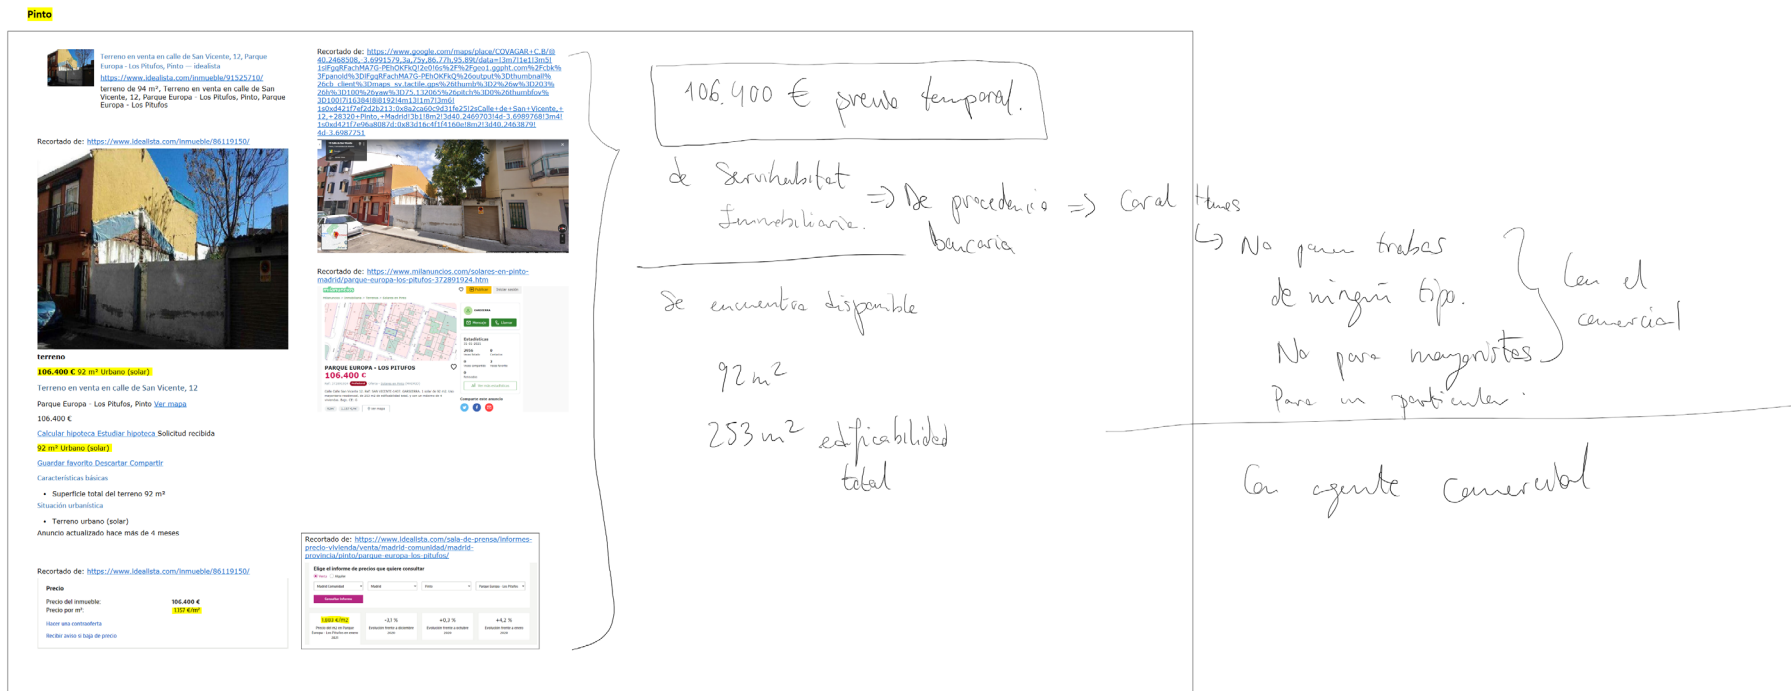 Pinto
Terreno en venta en calle de San Vicente, 12, Parque
Europa - Los Pitufos, Pinto — idealista
https://www.idealista.com/inmueble/91525710/
terreno de 94 m², Terreno en venta en calle de San
Vicente, 12, Parque Europa - Los Pitufos, Pinto, Parque
Europa - Los Pitufos
Recortado de: https://www.idealista.com/inmueble/86119150/
terreno
106.400 € 92 m² Urbano (solar)
Terreno en venta en calle de San Vicente, 12
Parque Europa - Los Pitufos, Pinto Ver mapa
106.400 €
Calcular hipoteca Estudiar hipoteca Solicitud recibida
92 m² Urbano (solar)
Guardar favorito Descartar Compartir
Características básicas
• Superficie total del terreno 92 m²
Situación urbanística
• Terreno urbano (solar)
Anuncio actualizado hace más de 4 meses
Recortado de: https://www.idealista.com/inmueble/86119150/
Precio
Precio del inmueble: 106.400 €
Precio por m²: 1.157 €/m²
Hacer una contraoferta
Recibir aviso si baja de precio
Recortado de: https://www.google.com/maps/place/COVAGAR+C.B/@
Recortado de: https://www.milanuncios.com/solares-en-pinto-
madrid/parque-europa-los-pitufos-372891924.htm
milanuncios
Publicar
Mensaje
Llamar
Estadísticas
PARQUE EUROPA - LOS PITUFOS
106.400 €
Ver mapa
Comparte este anuncio
Recortado de: https://www.idealista.com/sala-de-prensa/informes-
precio-vivienda/venta/madrid-comunidad/madrid-
provincia/pinto/parque-europa-los-pitufos/
Elige el informe de precios que quiere consultar
Venta Alquiler
Madrid Comunidad Madrid Pinto Parque Europa - Los Pitufos
Consultar informe
-3,1 % +0,3 % +4,2 %
106.400 € precio temporal.
de Servihabitat
Inmobiliaria.
=> De procedencia => Coral Homes
bancaria
↳ No poner trabas
de ningún tipo.
No para mayoristas
Para un particular.
Con el
comercial
Se encuentra disponible
92 m²
253 m² edificabilidad
total
Con agente comercial